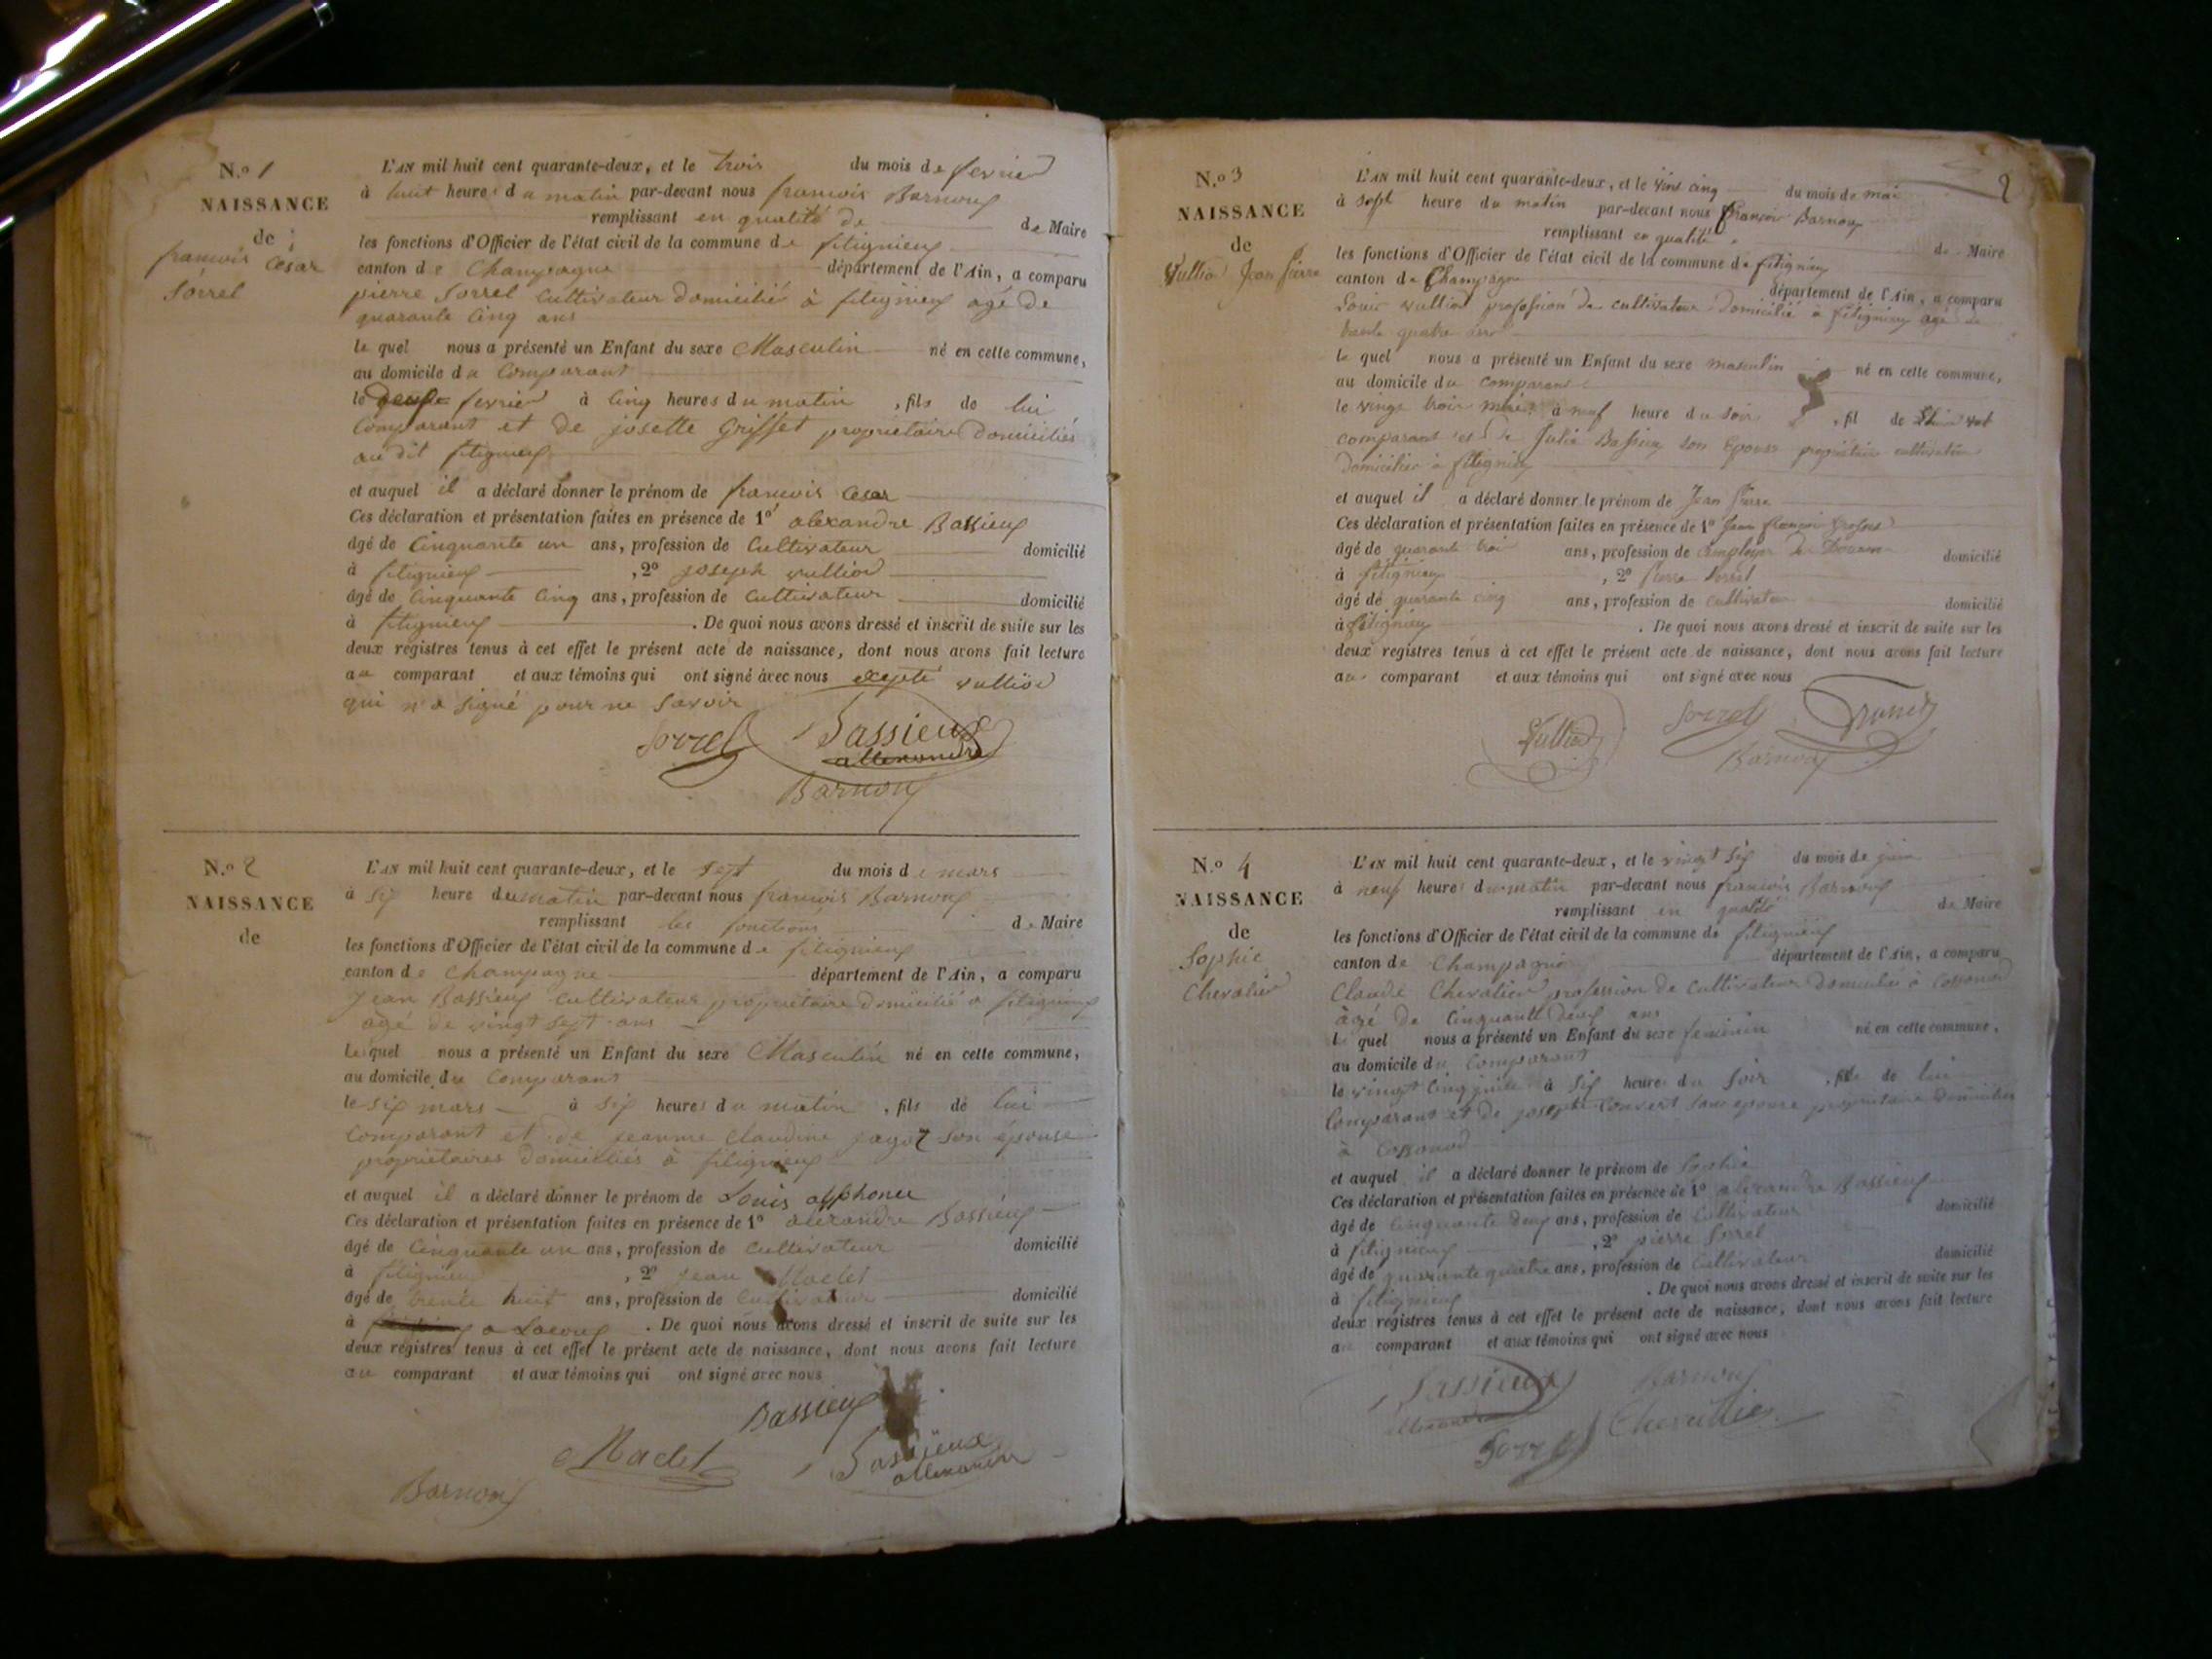 N.º 1
NAISSANCE
de
francois César
Sorrel
L'AN mil huit cent quarante-deux, et le trois du mois de fevrier
à huit heures du matin par-devant nous francois Barnoux
remplissant en qualité de de Maire
les fonctions d'Officier de l'état civil de la commune de fitignieux
canton de Champagne département de l'Ain, a comparu
pierre Sorrel Cultivateur domicilié à fitignieux agé de
quarante cinq ans
le quel nous a présenté un Enfant du sexe Masculin né en cette commune,
au domicile du Comparant
le deux fevrier à cinq heures du matin , fils de lui
Comparant et de josette Griffet proprietaires domiciliés
au dit fitignieux
et auquel il a déclaré donner le prénom de francois Cesar
Ces déclaration et présentation faites en présence de 1º alexandre Bassieux
âgé de Cinquante un ans, profession de Cultivateur domicilié
à fitignieux , 2º joseph vulliod
âgé de Cinquante Cinq ans, profession de Cultivateur domicilié
à fitignieux . De quoi nous avons dressé et inscrit de suite sur les
deux régistres tenus à cet effet le présent acte de naissance, dont nous avons fait lecture
au comparant et aux témoins qui ont signé avec nous excepté vulliod
qui n'a signé pour ne savoir
Sorrel Bassieux
allexandre
Barnoux
N.º 2
NAISSANCE
de
L'AN mil huit cent quarante-deux, et le sept du mois de mars
à six heure du matin par-devant nous francois Barnoux
remplissant les fonctions de Maire
les fonctions d'Officier de l'état civil de la commune de fitignieux
canton de Champagne département de l'Ain, a comparu
Jean Bassieux Cultivateur proprietaire domicilié a fitignieux
agé de vingt sept ans
Le quel nous a présenté un Enfant du sexe Masculin né en cette commune,
au domicile du Comparant
le six mars à six heures du matin , fils de lui
Comparant et de jeanne Claudine jagot son épouse
proprietaires domiciliés à fitignieux
et auquel il a déclaré donner le prénom de Louis alphonse
Ces déclaration et présentation faites en présence de 1º alexandre Bassieux
âgé de Cinquante un ans, profession de Cultivateur domicilié
à fitignieux , 2º jean Maclet
âgé de trente huit ans, profession de Cultivateur domicilié
à a . De quoi nous avons dressé et inscrit de suite sur les
deux régistres tenus à cet effet le présent acte de naissance, dont nous avons fait lecture
au comparant et aux témoins qui ont signé avec nous
Bassieux
Maclet Bassieux
allexandre
Barnoux
2
N.º 3
NAISSANCE
de
Vulliod Jean Pierre
L'AN mil huit cent quarante-deux, et le vint cinq du mois de mai
à sept heure du matin par-devant nous François Barnoux
remplissant en qualité de Maire
les fonctions d'Officier de l'état civil de la commune de fitignieu
canton de Champagne département de l'Ain, a comparu
Louis vulliod profession de cultivateur domicilié a fitignieu agé de
trente quatre ans
le quel nous a présenté un Enfant du sexe masculin né en cette commune,
au domicile du comparant
le vingt trois mai à neuf heure du soir , fil de
comparant et de Julie Bassieux son Epouse cultivateur
domicilier a fitignieu
et auquel il a déclaré donner le prénom de Jean Pierre
Ces déclaration et présentation faites en présence de 1º Jean françois
âgé de quarante trois ans, profession de Employer de Douane domicilié
à fitignieu , 2º Pierre Sorrel
âgé de quarante cinq ans, profession de cultivateur domicilié
à fitignieu . De quoi nous avons dressé et inscrit de suite sur les
deux registres tenus à cet effet le présent acte de naissance, dont nous avons fait lecture
au comparant et aux témoins qui ont signé avec nous
Vulliod Sorrel
Barnoux
N.º 4
NAISSANCE
de
Sophie
Chevalier
L'AN mil huit cent quarante-deux, et le vingt six du mois de juin
à neuf heures du matin par-devant nous francois Barnoux
remplissant en qualité de Maire
les fonctions d'Officier de l'état civil de la commune de fitignieux
canton de Champagne département de l'Ain, a comparu
Claude Chevalier profession de Cultivateur domicilié à Cossonod
âgé de Cinquante deux ans
le quel nous a présenté un Enfant du sexe feminin né en cette commune,
au domicile du Comparant
le vingt cinq juin à six heures du soir , fille de lui
Comparant et de josephte Convert son epouse proprietaire domiciliés
à Cossonod
et auquel il a déclaré donner le prénom de Sophie
Ces déclaration et présentation faites en présence de 1º alexandre Bassieux
âgé de Cinquante deux ans, profession de Cultivateur domicilié
à fitignieux , 2º pierre Sorrel
âgé de quarante quatre ans, profession de Cultivateur domicilié
à fitignieux . De quoi nous avons dressé et inscrit de suite sur les
deux registres tenus à cet effet le présent acte de naissance, dont nous avons fait lecture
au comparant et aux témoins qui ont signé avec nous
Bassieux Barnoux
allexandre
Sorrel Chevallier